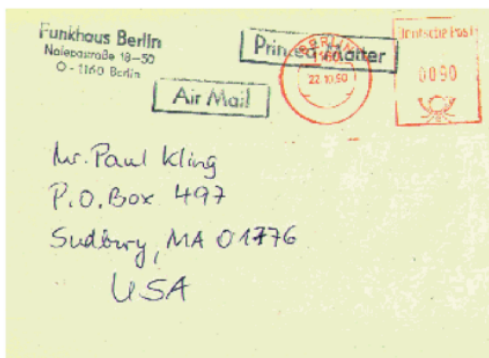 Funkhaus Berlin
Nalepastraße 18-50
O - 1160 Berlin
Printed Matter
Air Mail
BERLIN
1160
22.10.90
Deutsche Post
0090
Mr. Paul Kling
P.O. Box 497
Sudbury, MA 01776
USA